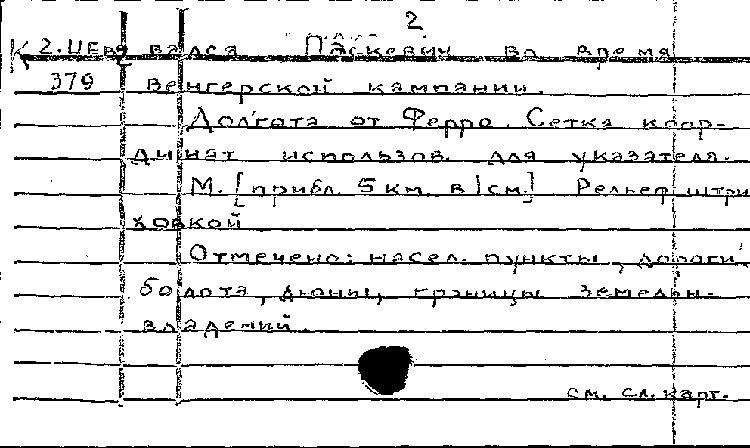 2
К 2.ЦЕВ
вался Паскевич во время
379 Венгерской кампании.
Долгота от Ферро. Сетка коор-
динат использов. для указателя.
М. [прибл. 5 км. в 1 см.] Рельеф штри
ховкой
Отмечено: насел. пункты, дороги,
болота, дюны, границы земельн.
владений.
см. сл. карт.